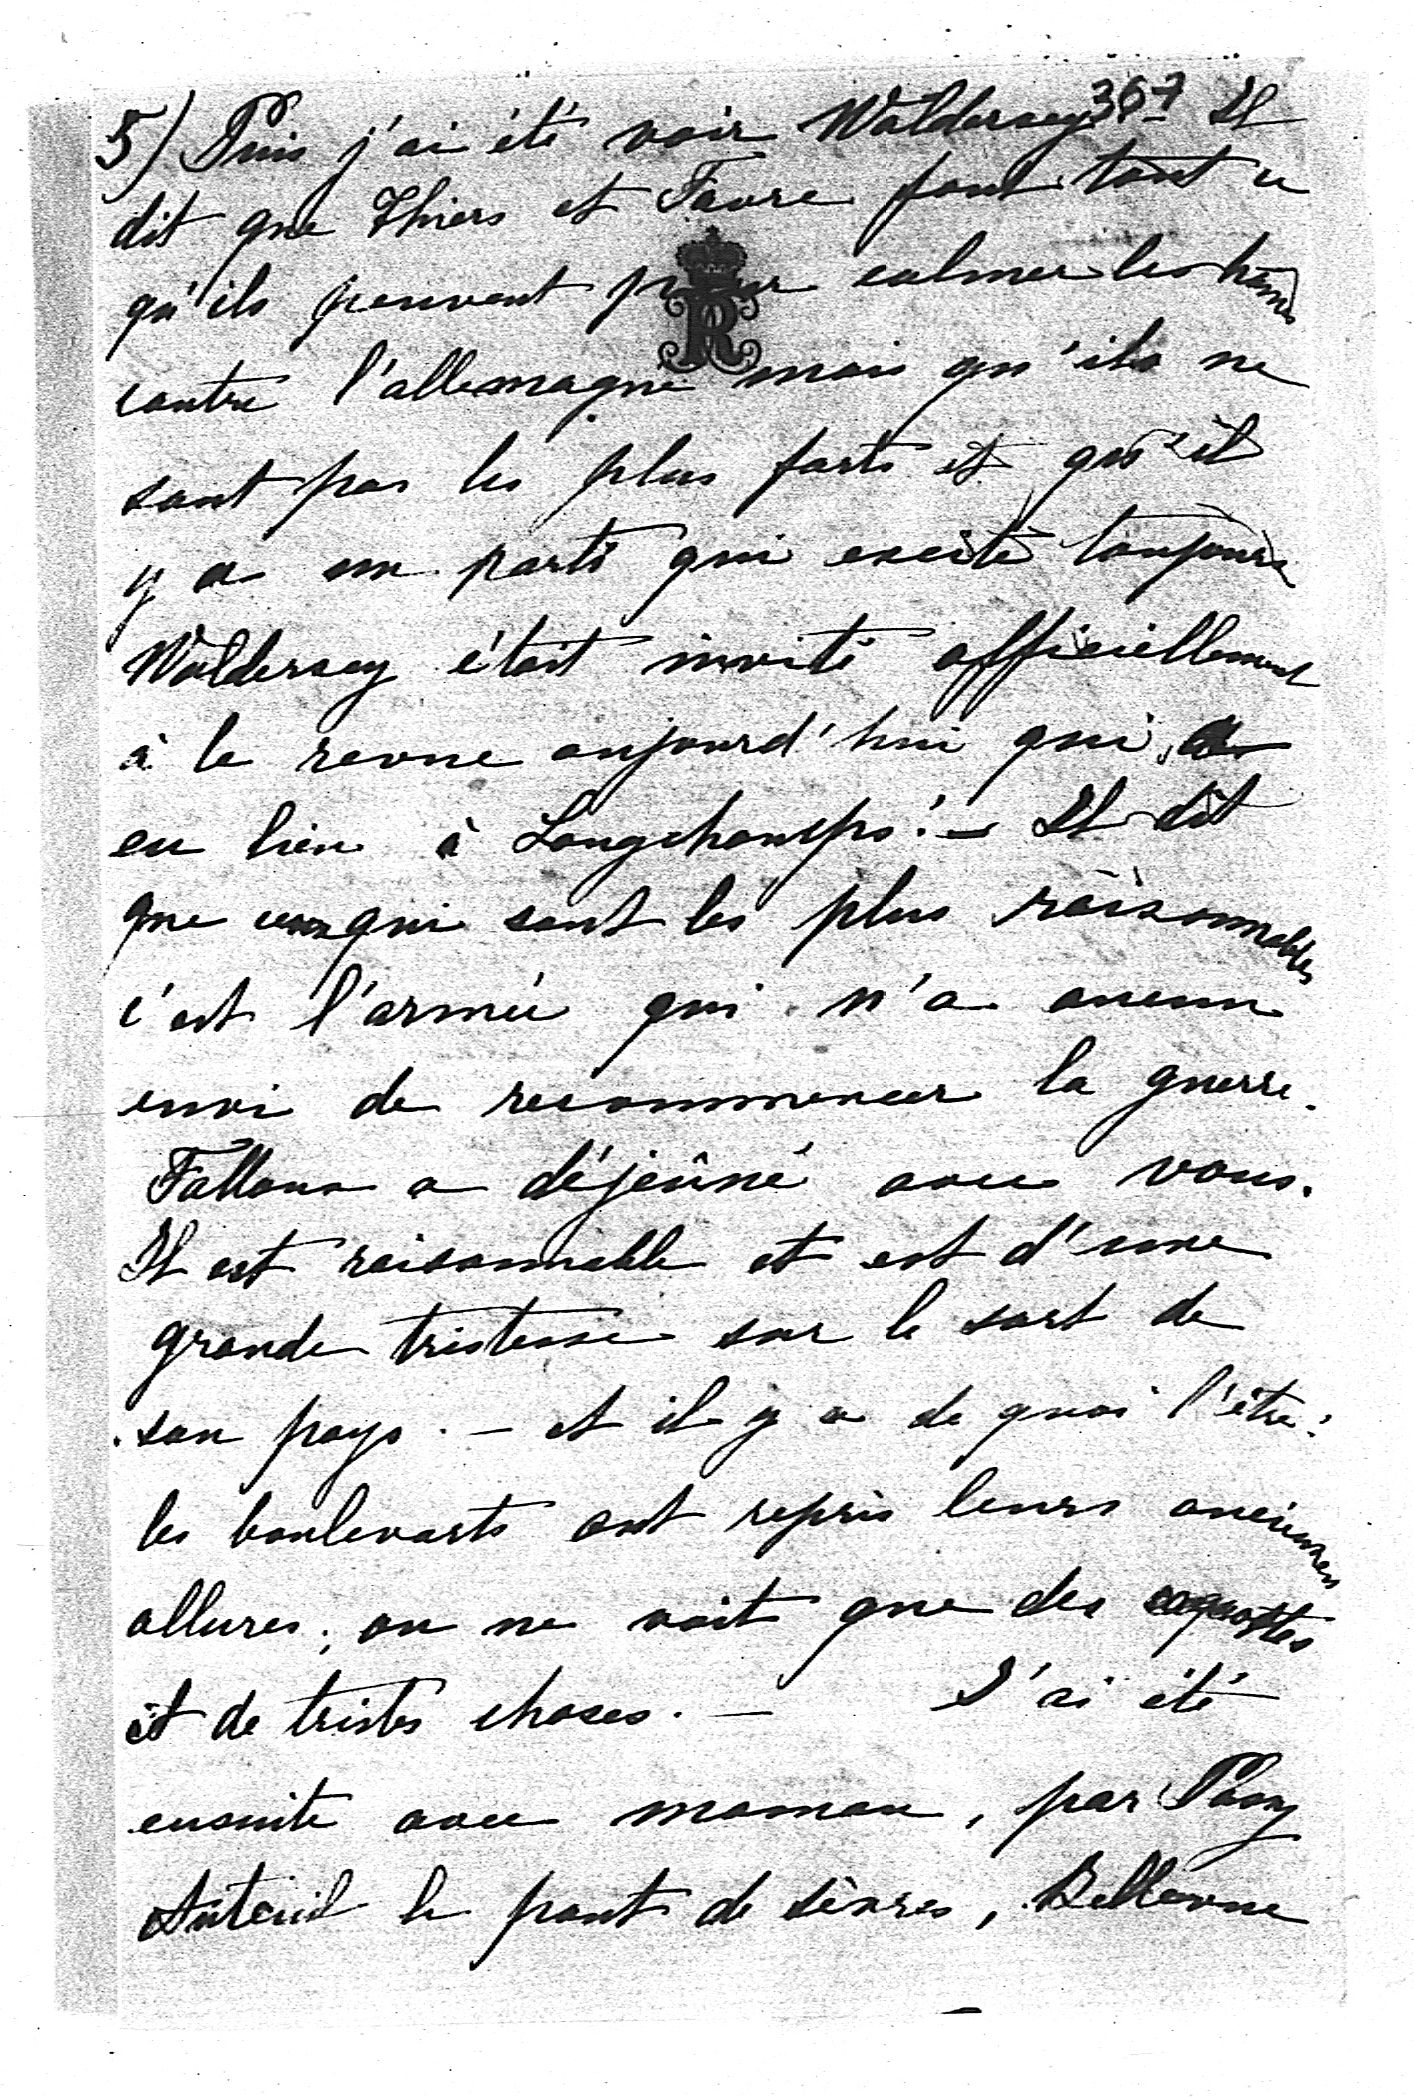 5) Puis j'ai été voir Waldersey 367 Il
dit que Thiers et Favre font tout ce
qu'ils peuvent pour calmer les haines
contre l'allemagne mais qu'ils ne
sont pas les plus forts et qu'il
y a un parti qui excite toujours
Waldersey était invité officiellement
à la revue aujourd'hui qui a
eu lieu à Longchamps! – Il dit
que ceux qui sont les plus raisonnables
c'est l'armée qui n'a aucun
envi de recommencer la guerre.
a déjeûné avec vous.
Il est raisonnable et est d'une
grande tristesse sur le sort de
son pays. – et il y a de quoi l'être!
les boulevarts ont repris leurs anciennes
allures; on ne voit que des cocottes
et de tristes choses. – J'ai été
ensuite avec maman, par Passy
Auteuil le pont de sèvres, Bellevue
R